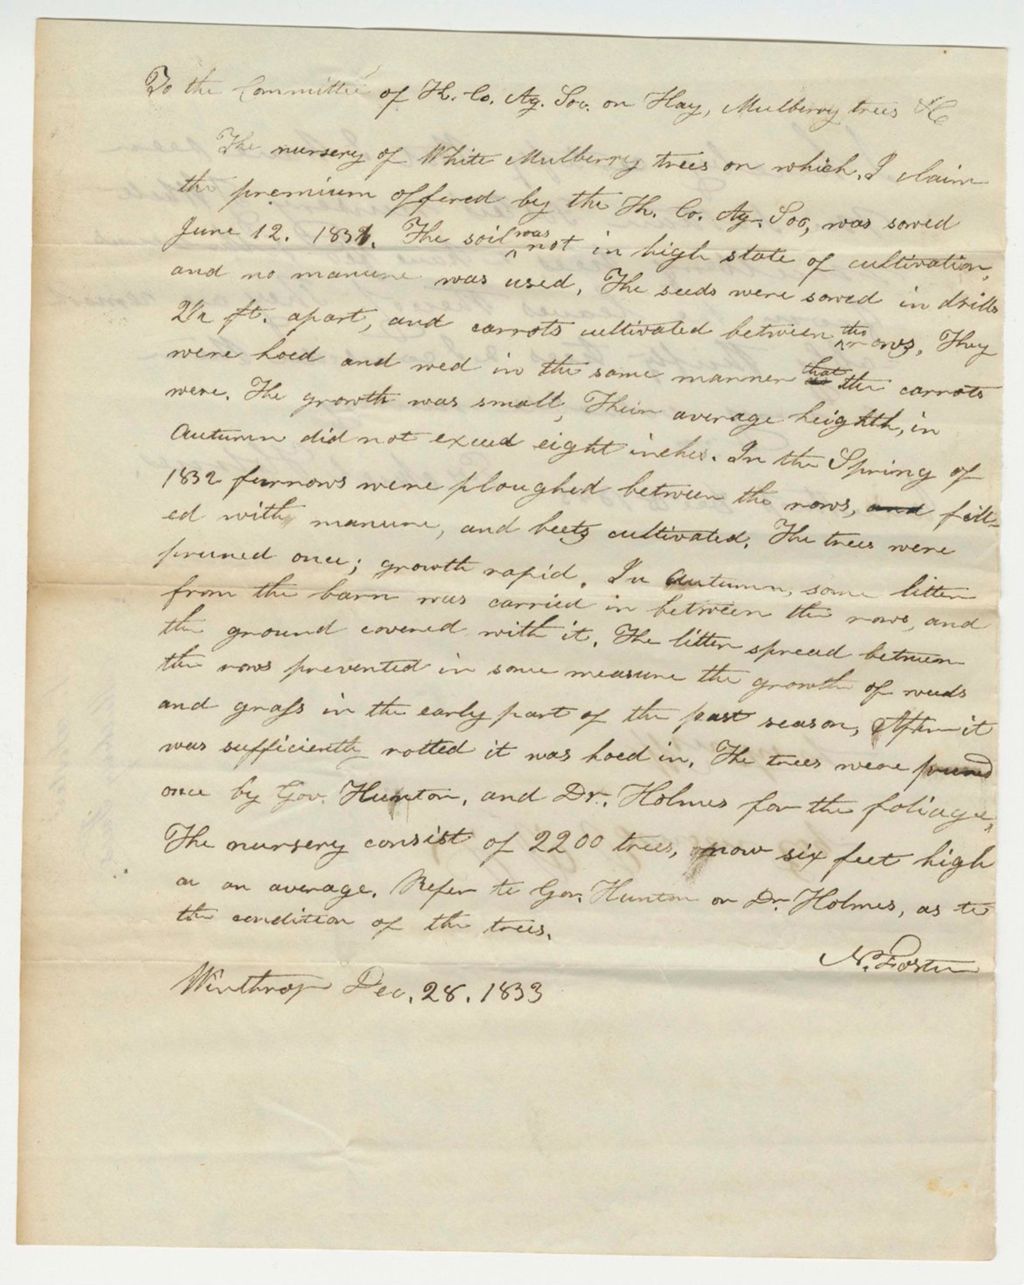 To the Committee of K. Co. Ag. Soc. on Hay, Mulberry trees &C
The nursery of White Mulberry trees on which, I claim
the premium offered by the K. Co. Ag. Soc, was sowed
June 12. 1831. The soil was not in high state of cultivation,
and no manure was used. The seeds were sowed in drills
2½ ft. apart, and carrots cultivated between the rows. They
were hoed and wed in the same manner that the carrots
were. The growth was small, Their average heighth, in
Autumn did not exceed eight inches. In the Spring of
1832 furrows were ploughed between the rows, and fill-
ed with manure, and beets cultivated. The trees were
pruned once; growth rapid. In Autumn, some litter
from the barn was carried in between the rows, and
the ground covered with it. The litter spread between
the rows prevented in some measure the growth of weeds
and grass in the early part of the past season, After it
was sufficiently rotted it was hoed in. The trees were pruned
once by Gov. Hunton, and Dr. Holmes for the foliage,
The nursery consist of 2200 trees, now six feet high
on an average. Refer to Gov. Hunton or Dr. Holmes, as to
the condition of the trees.
N. Foster
Winthrop Dec. 28. 1833